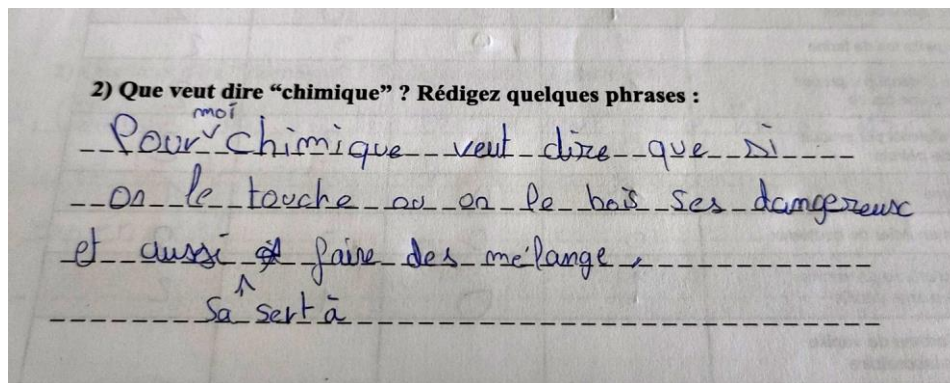 2) Que veut dire “chimique” ? Rédigez quelques phrases :
moi
Pour chimique veut dire que si
on le touche ou on le bois ses dangereux
et aussi faire des mélange,
sa sert à